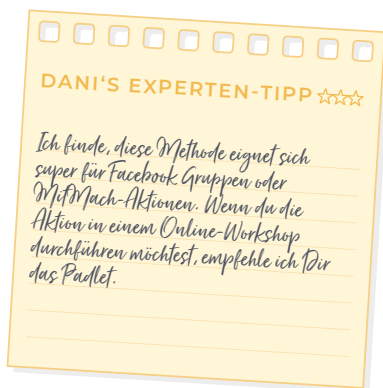 DANI'S EXPERTEN-TIPP
Ich finde, diese Methode eignet sich
super für Facebook Gruppen oder
MitMach-Aktionen. Wenn du die
Aktion in einem Online-Workshop
durchführen möchtest, empfehle ich Dir
das Padlet.